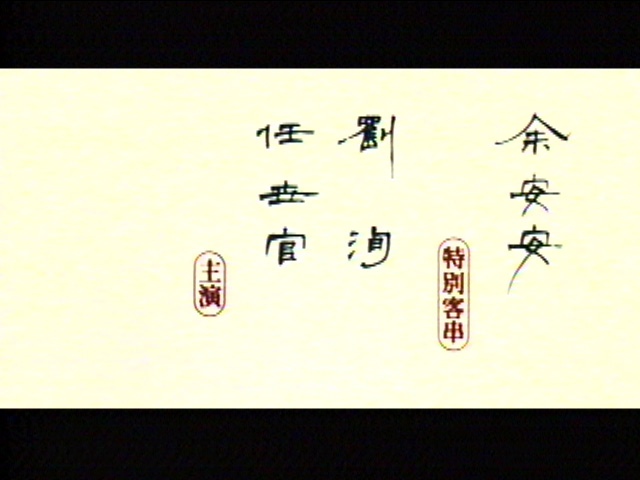 余安安
特別客串
劉洵
任世官
主演